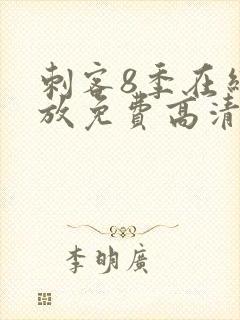 刺客8季在
放免費高清
李明廣